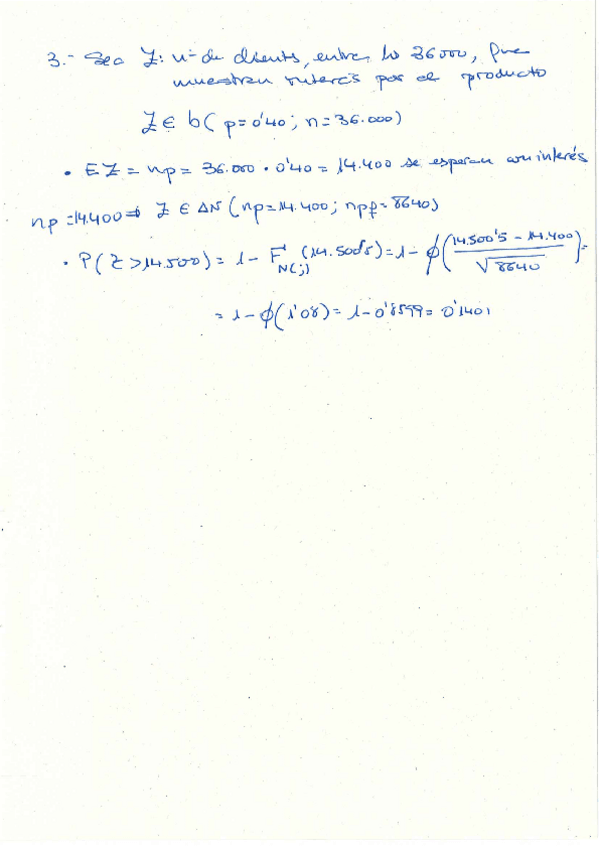 3.- Sea Z: nº de clients, entre lo 36000, que
muestran interés por el producto
Z ∈ b( p=0'40; n=36.000)
• EZ = np = 36.000 • 0'40 = 14.400 se esperan con interés
np =14.400 ⇒ Z ∈ AN (np=14.400; npq=8640)
• P( Z >14.500) = 1 - F N(;) (14.500'5) = 1 - ϕ( 14.500'5 - 14.400 / √8640 ) =
= 1 - ϕ( 1'08) = 1 - 0'8599 = 0'1401